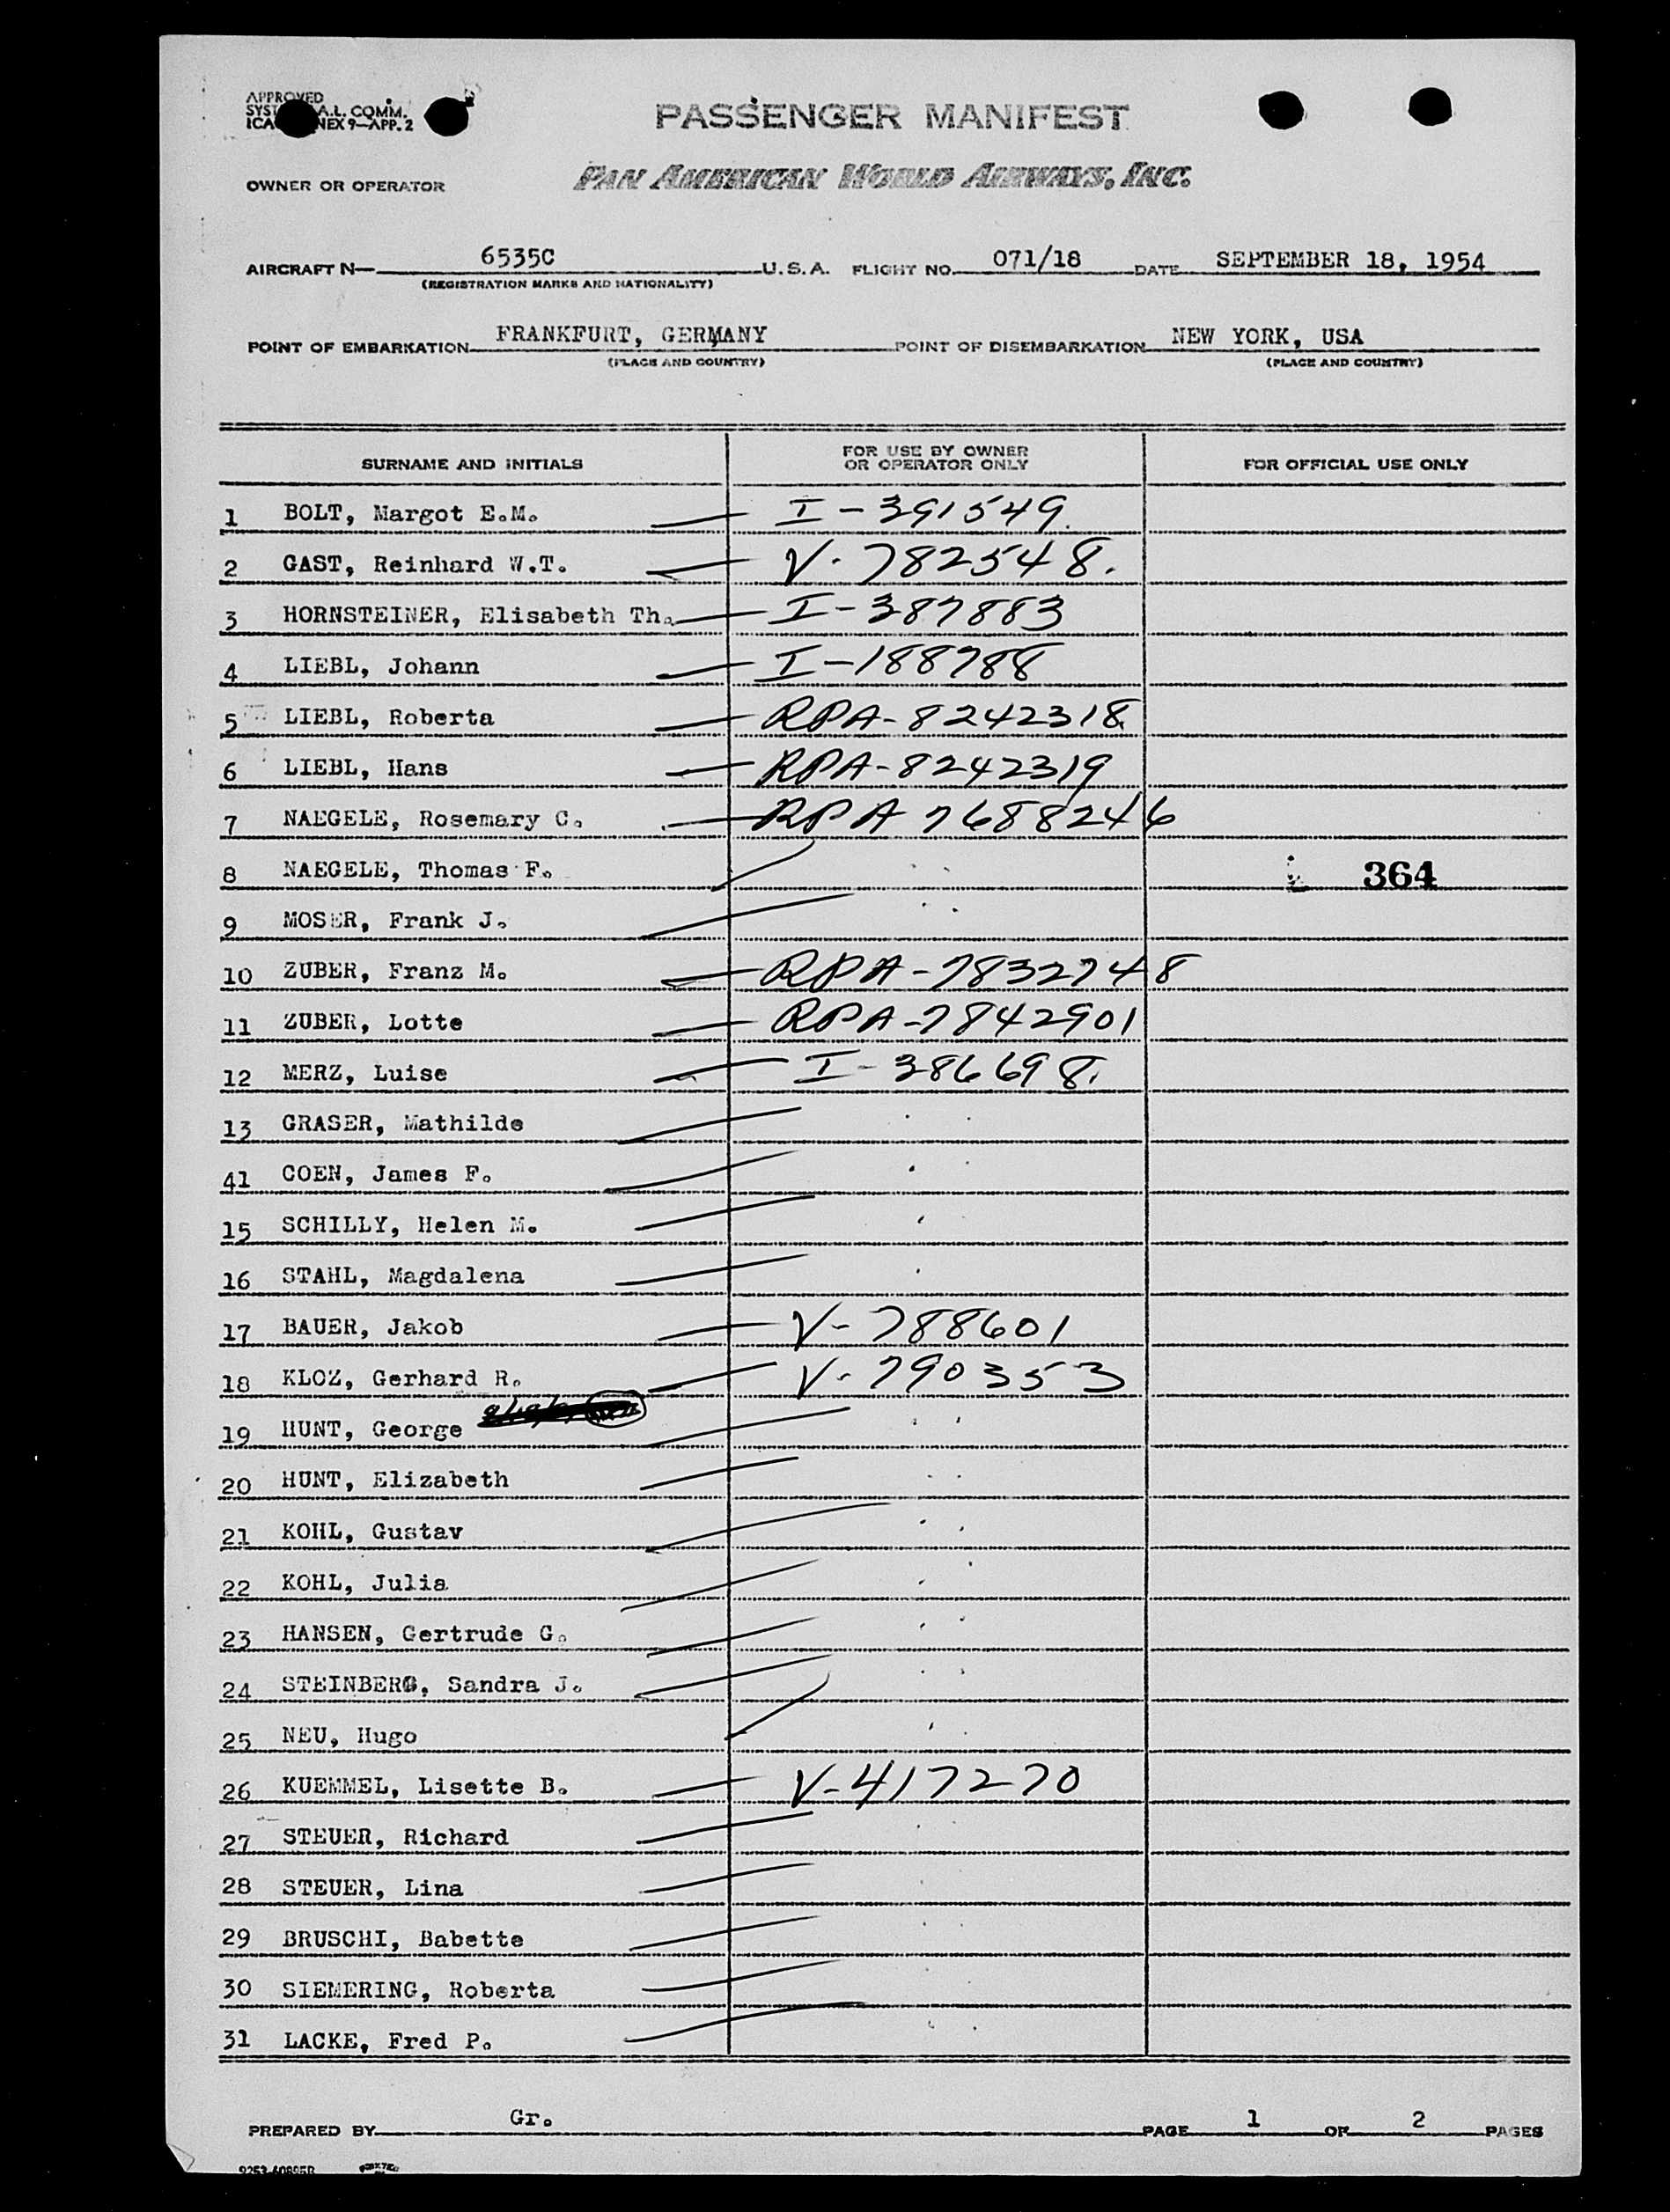 APPROVED
A.L. COMM.
NEX 9—APP. 2
PASSENGER MANIFEST
OWNER OR OPERATOR PAN AMERICAN WORLD AIRWAYS, INC.
AIRCRAFT N— 6535C U.S.A. FLIGHT NO. 071/18 DATE SEPTEMBER 18, 1954
(REGISTRATION MARKS AND NATIONALITY)
POINT OF EMBARKATION FRANKFURT, GERMANY POINT OF DISEMBARKATION NEW YORK, USA
(PLACE AND COUNTRY) (PLACE AND COUNTRY)
SURNAME AND INITIALS FOR USE BY OWNER OR OPERATOR ONLY FOR OFFICIAL USE ONLY
1 BOLT, Margot E.M. I-391549.
2 GAST, Reinhard W.T. V-782548.
3 HORNSTEINER, Elisabeth Th. I-387883
4 LIEBL, Johann I-188788
5 LIEBL, Roberta RPA-8242318
6 LIEBL, Hans RPA-8242319
7 NAEGELE, Rosemary C. RPA 7688246
8 NAEGELE, Thomas F. 364
9 MOSER, Frank J.
10 ZUBER, Franz M. RPA-7832748
11 ZUBER, Lotte RPA-7842901
12 MERZ, Luise I-386698.
13 GRASER, Mathilde
41 COEN, James F.
15 SCHILLY, Helen M.
16 STAHL, Magdalena
17 BAUER, Jakob V-788601
18 KLOZ, Gerhard R. V-790353
19 HUNT, George
20 HUNT, Elizabeth
21 KOHL, Gustav
22 KOHL, Julia
23 HANSEN, Gertrude G.
24 STEINBERG, Sandra J.
25 NEU, Hugo
26 KUEMMEL, Lisette B. V-417270
27 STEUER, Richard
28 STEUER, Lina
29 BRUSCHI, Babette
30 SIEMERING, Roberta
31 LACKE, Fred P.
PREPARED BY Gr. PAGE 1 OF 2 PAGES